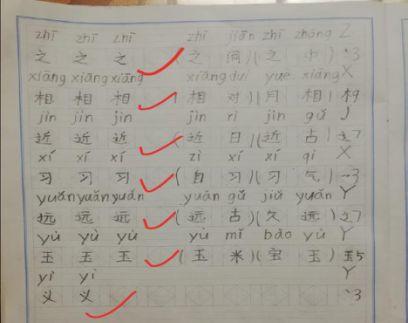 zhī zhī zhī zhī jiān zhī zhōng Z
之 之 之 (之 间)(之 中) 丶3
xiāng xiāng xiāng xiāng duì yuè xiàng X
相 相 相 (相 对)(月 相) 木9
jìn jìn jìn jìn rì jìn gǔ J
近 近 近 (近 日)(近 古) 辶7
xí xí xí zì xí xí qì X
习 习 习 (自 习)(习 气) 3
yuǎn yuǎn yuǎn yuǎn gǔ jiǔ yuǎn Y
远 远 远 (远 古)(久 远) 辶7
yù yù yù yù mǐ bǎo yù Y
玉 玉 玉 (玉 米)(宝 玉) 玉5
yì yì Y
义 义 丶3